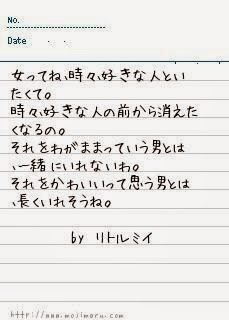 No.
Date . .
女ってね、時々、好きな人とい
たくて。
時々、好きな人の前から消えた
くなるの。
それをわがままっていう男とは
、一緒にいれないわ。
それをかわいいって思う男とは
、長くいれそうね。
by リトルミイ
http://www.mojimaru.com